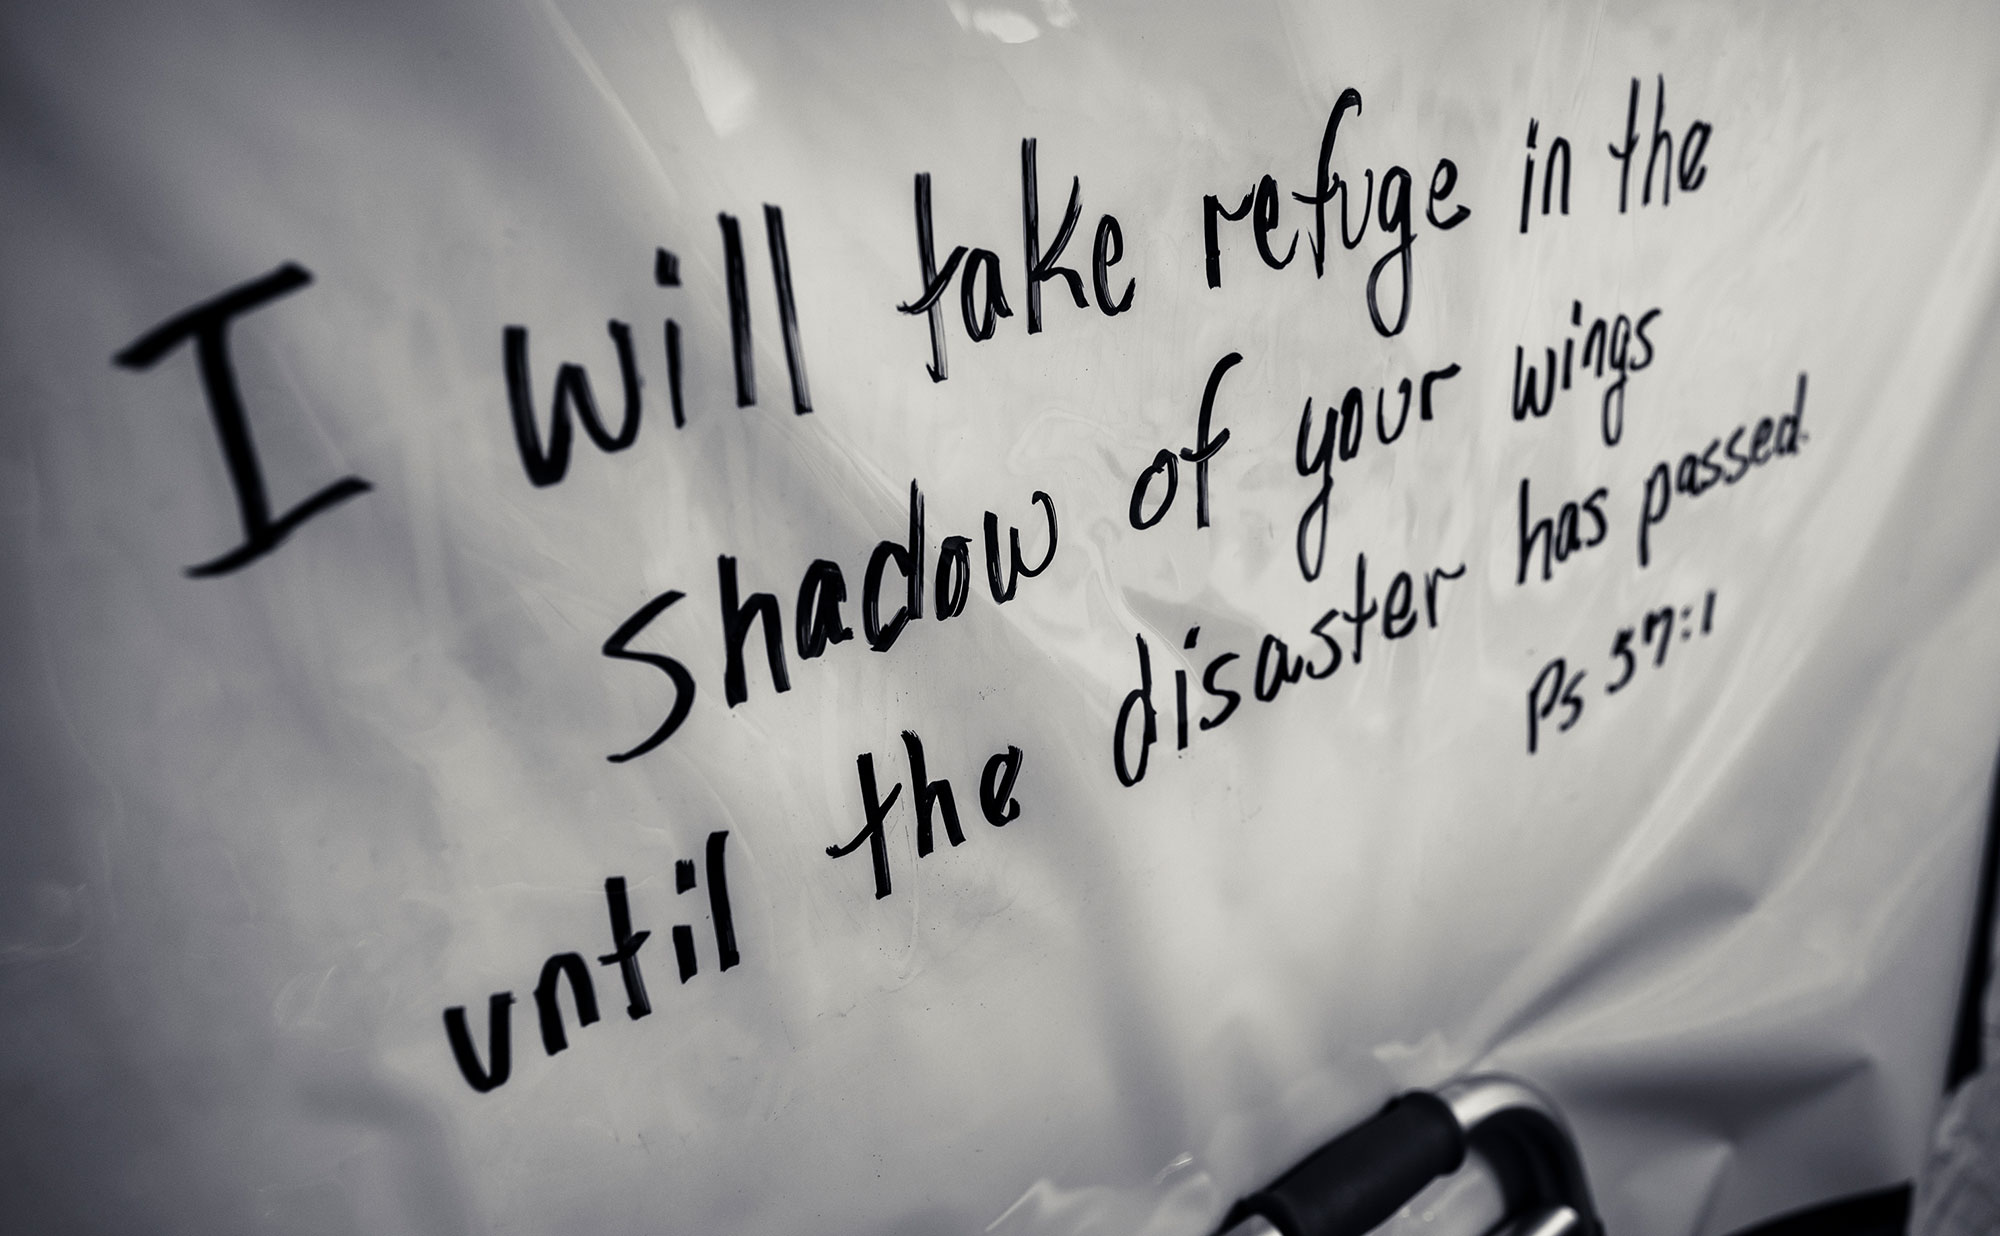 I will take refuge in the
shadow of your wings
until the disaster has passed.
Ps 57:1